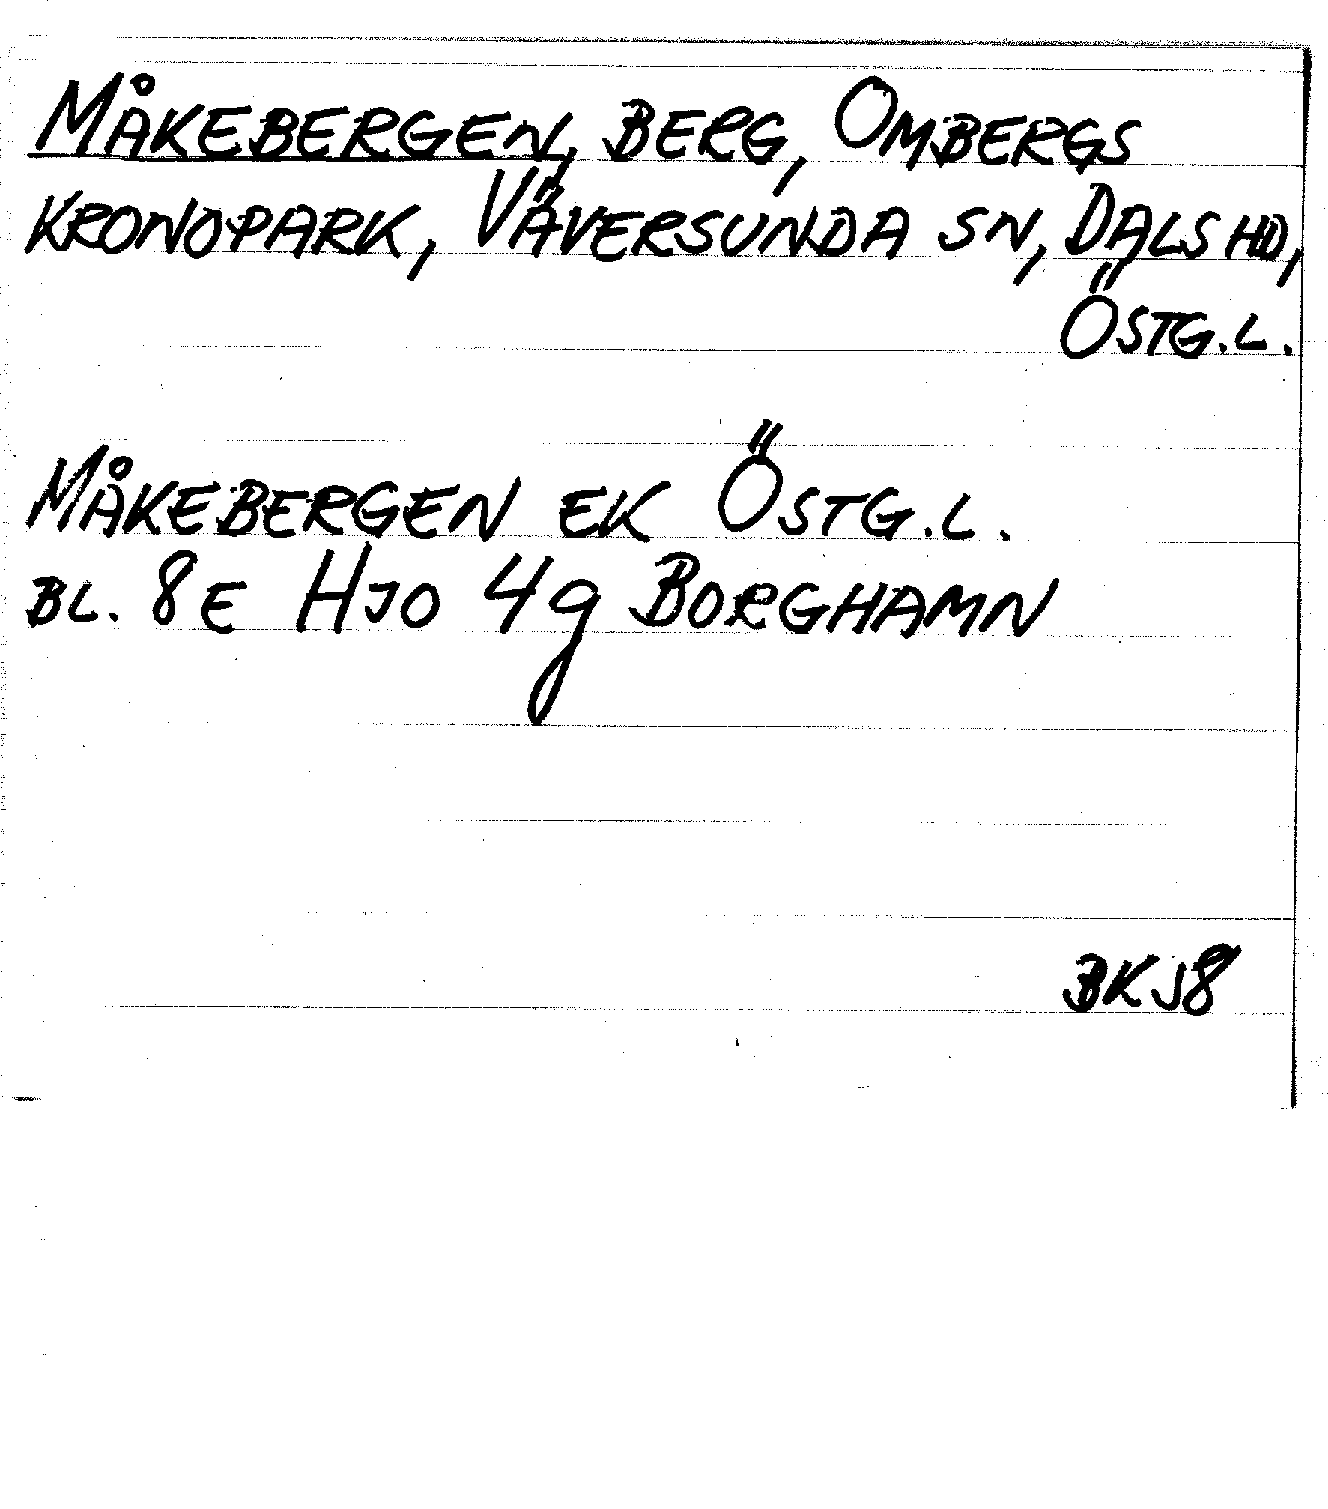 MÅKEBERGEN, BERG, OMBERGS
KRONOPARK, VÄVERSUNDA SN, DALS HD,
ÖSTG.L.
MÅKEBERGEN EK ÖSTG.L.
BL. 8E HJO 4g BORGHAMN
BKJ8